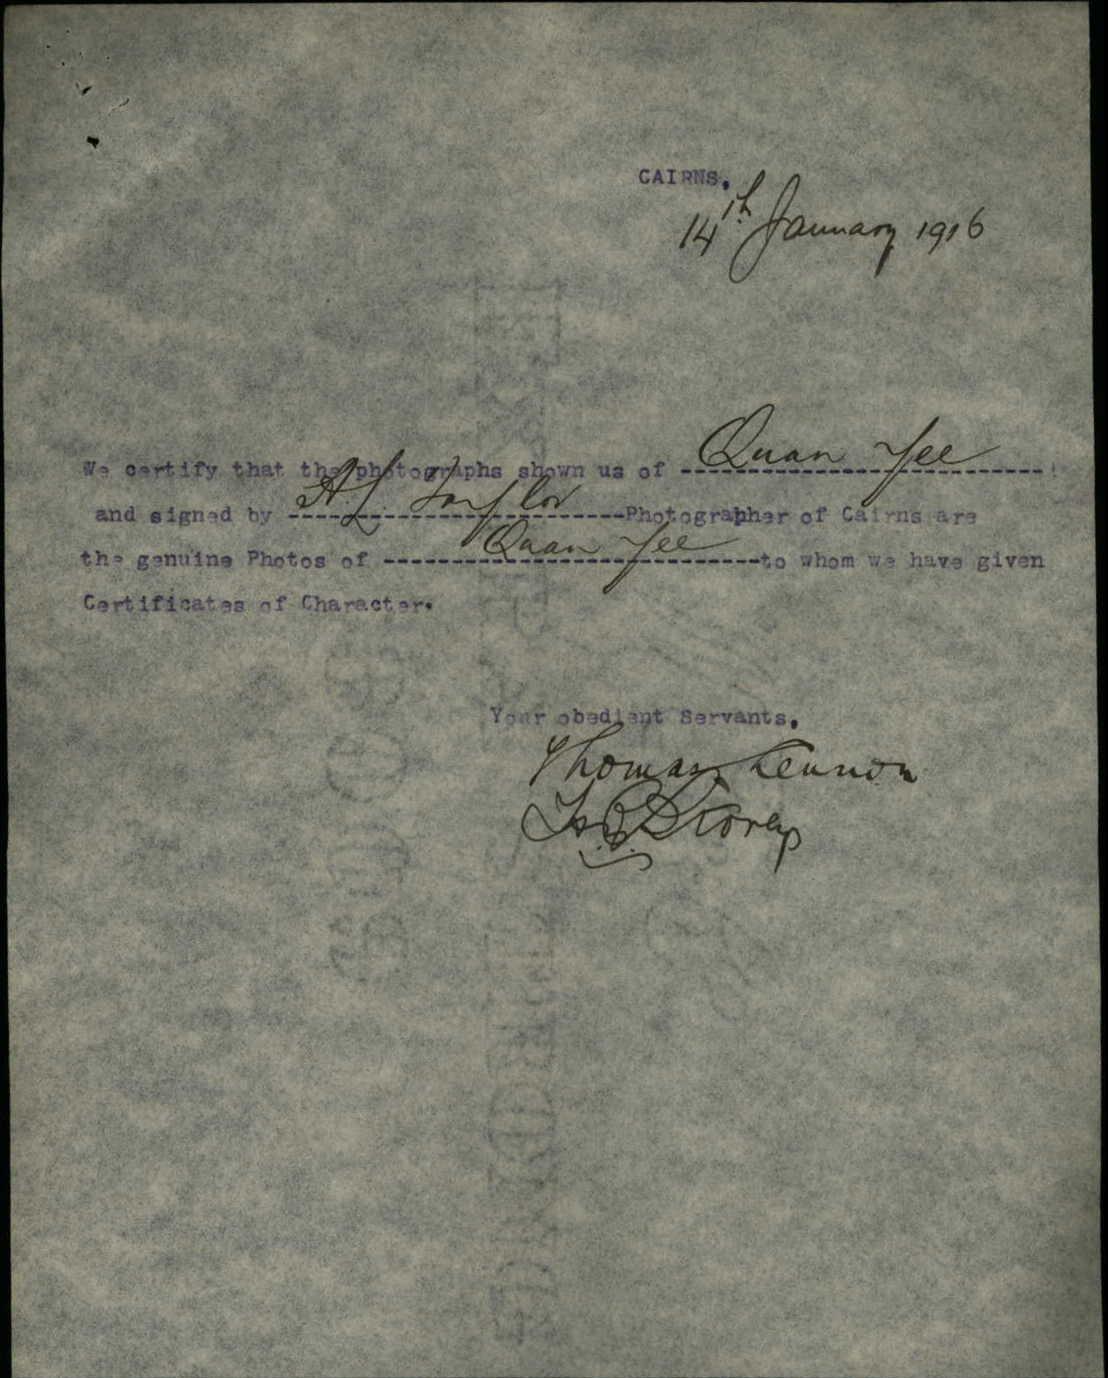 CAIRNS.
14th January 1916
We certify that the photographs shown us of Quan Yee
and signed by A.L. Taylor Photographer of Cairns are
the genuine Photos of Quan Yee to whom we have given
Certificates of Character.
Your obedient Servants.
Thomas Lennon
Storey